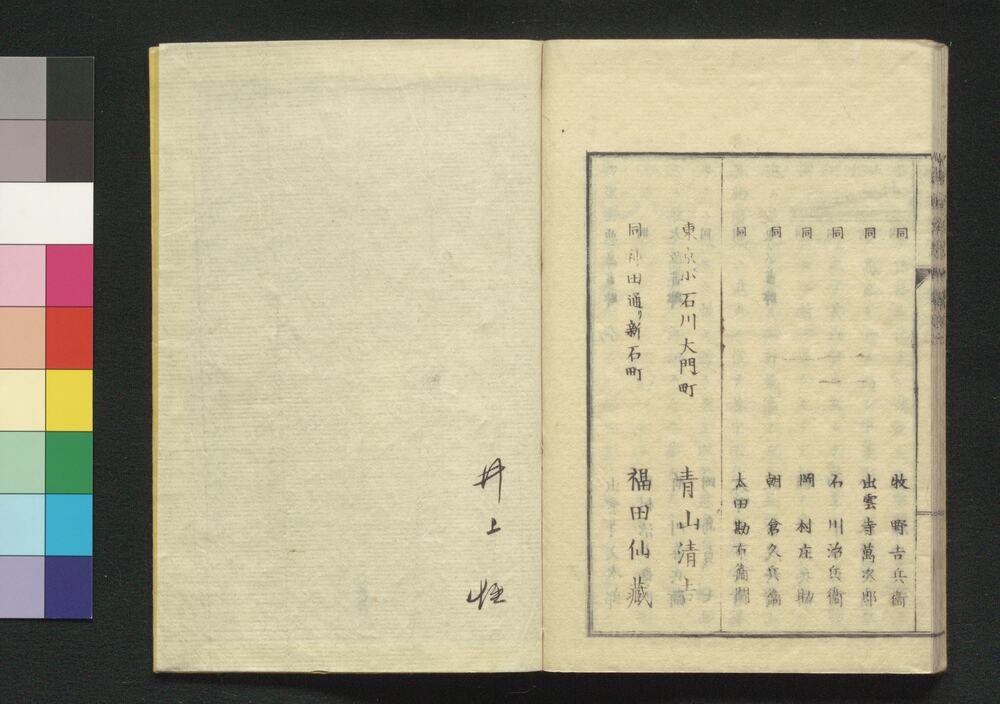 同 牧野吉兵衞
同 出雲寺萬次郎
同 石川治兵衞
同 岡村庄助
同 朝倉久兵衞
同 太田勘右衞門
東京小石川大門町 青山清吉
同神田通り新石町 福田仙藏
井上